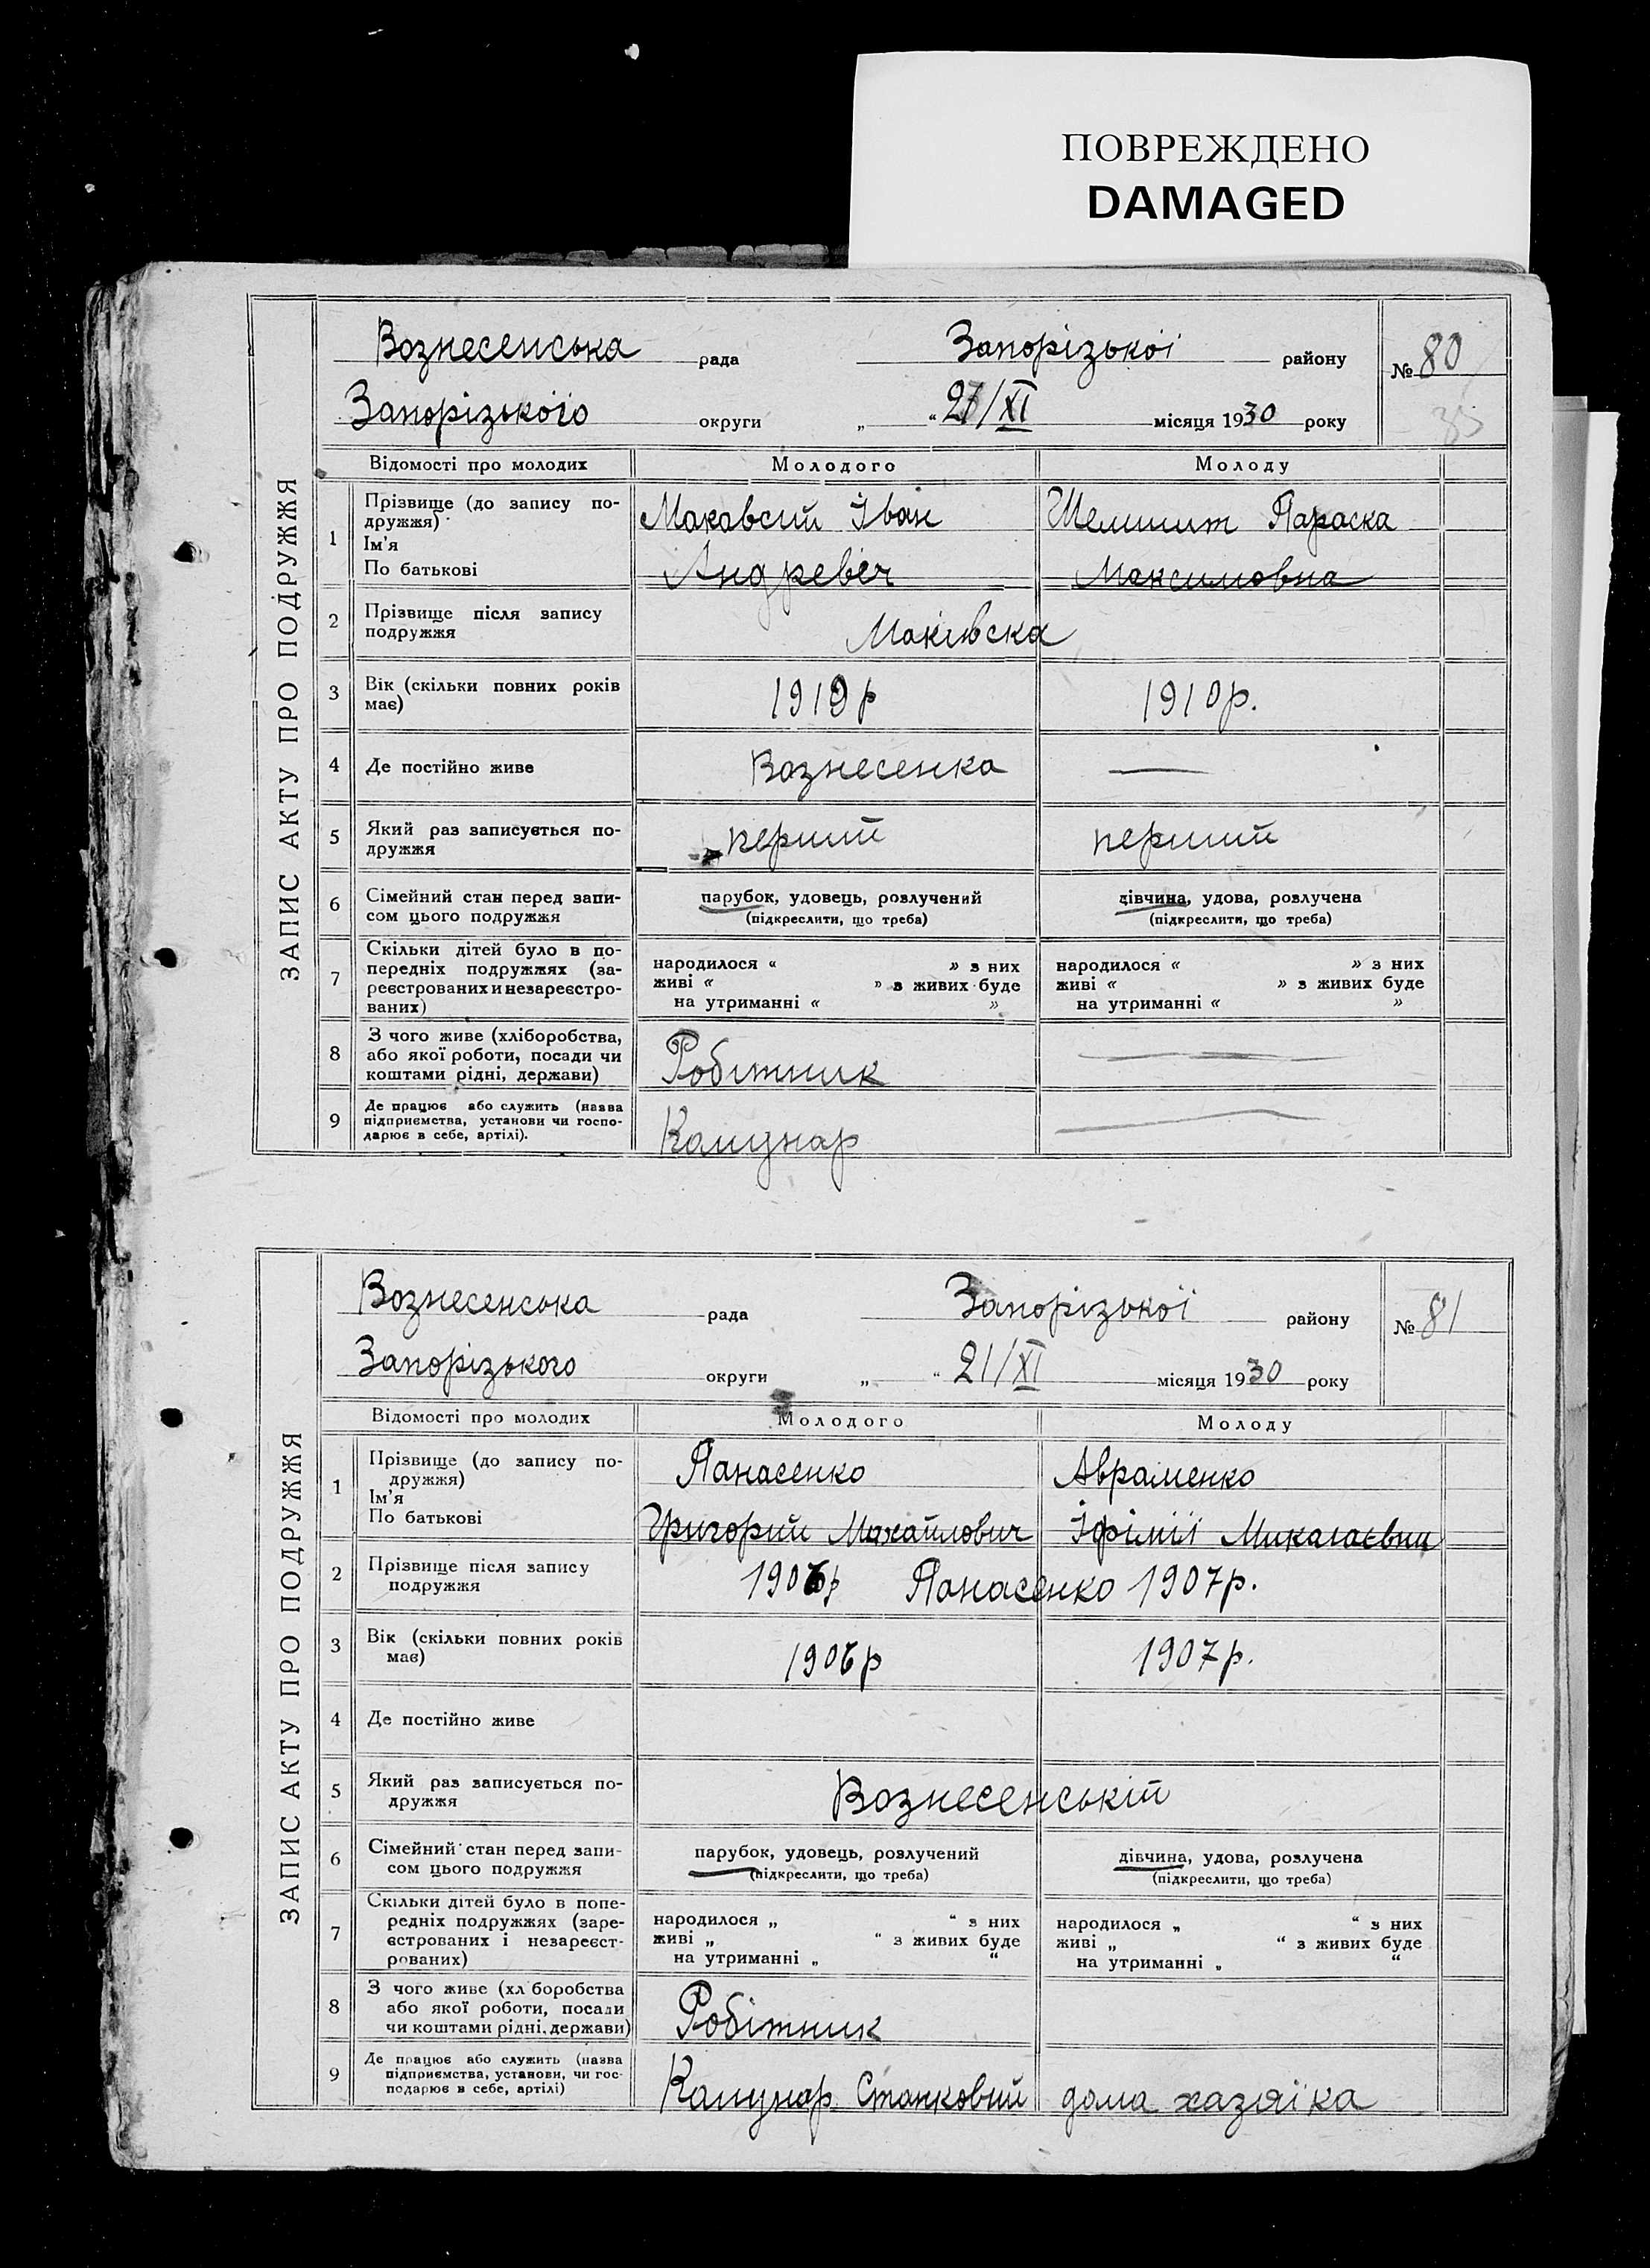 ПОВРЕЖДЕНО
DAMAGED
ЗАПИС АКТУ ПРО ПОДРУЖЖЯ
Вознесенська рада Запорізької району
№ 80
Запорізького округи „ “ /XI місяця 1930 року
35
Відомості про молодих Молодого Молоду
1 Прізвище (до запису по-
дружжя)
Ім'я
По батькові
Макавсий Іван
Андревіч
Параска
Максимовна
2 Прізвище після запису
подружжя
Маківска
3 Вік (скільки повних років
має)
р 1910р.
4 Де постійно живе Вознесенка —
5 Який раз записується по-
дружжя
перший перший
6 Сімейний стан перед запи-
сом цього подружжя
парубок, удовець, розлучений
(підкреслити, що треба)
дівчина, удова, розлучена
(підкреслити, що треба)
7 Скільки дітей було в по-
передніх подружжях (за-
реєстрованих и незареєстро-
ваних)
народилося « » з них
живі « » з живих буде
на утриманні « »
народилося « » з них
живі « » з живих буде
на утриманні « »
8 З чого живе (хліборобства,
або якої роботи, посади чи
коштами рідні, держави)
Робітник —
9 Де працює або служить (назва
підприємства, установи чи госпо-
дарює в себе, артілі).
Комунар —
ЗАПИС АКТУ ПРО ПОДРУЖЖЯ
Вознесенська рада Запорізької району
№ 81
Запорізького округи „ “ 21/XI місяця 1930 року
Відомості про молодих Молодого Молоду
1 Прізвище (до запису по-
дружжя)
Ім'я
По батькові
Панасенко
Григорий Махайлович
Авраменко
Іфімії
2 Прізвище після запису
подружжя
1906р Панасенко 1907р.
3 Вік (скільки повних років
має)
1906р 1907р.
4 Де постійно живе
5 Який раз записується по-
дружжя
Вознесенській
6 Сімейний стан перед запи-
сом цього подружжя
парубок, удовець, розлучений
(підкреслити, що треба)
дівчина, удова, розлучена
(підкреслити, що треба)
7 Скільки дітей було в попе-
редніх подружжях (заре-
єстрованих і незареєст-
рованих)
народилося „ “ з них
живі „ “ з живих буде
на утриманні „ “
народилося „ “ з них
живі „ “ з живих буде
на утриманні „ “
8 З чого живе (хл боробства
або якої роботи, посади
чи коштами рідні, держави)
Робітник
9 Де працює або служить (назва
підприємства, установи, чи гос-
подарює в себе, артілі)
Комунар Станковий дома хазяїка